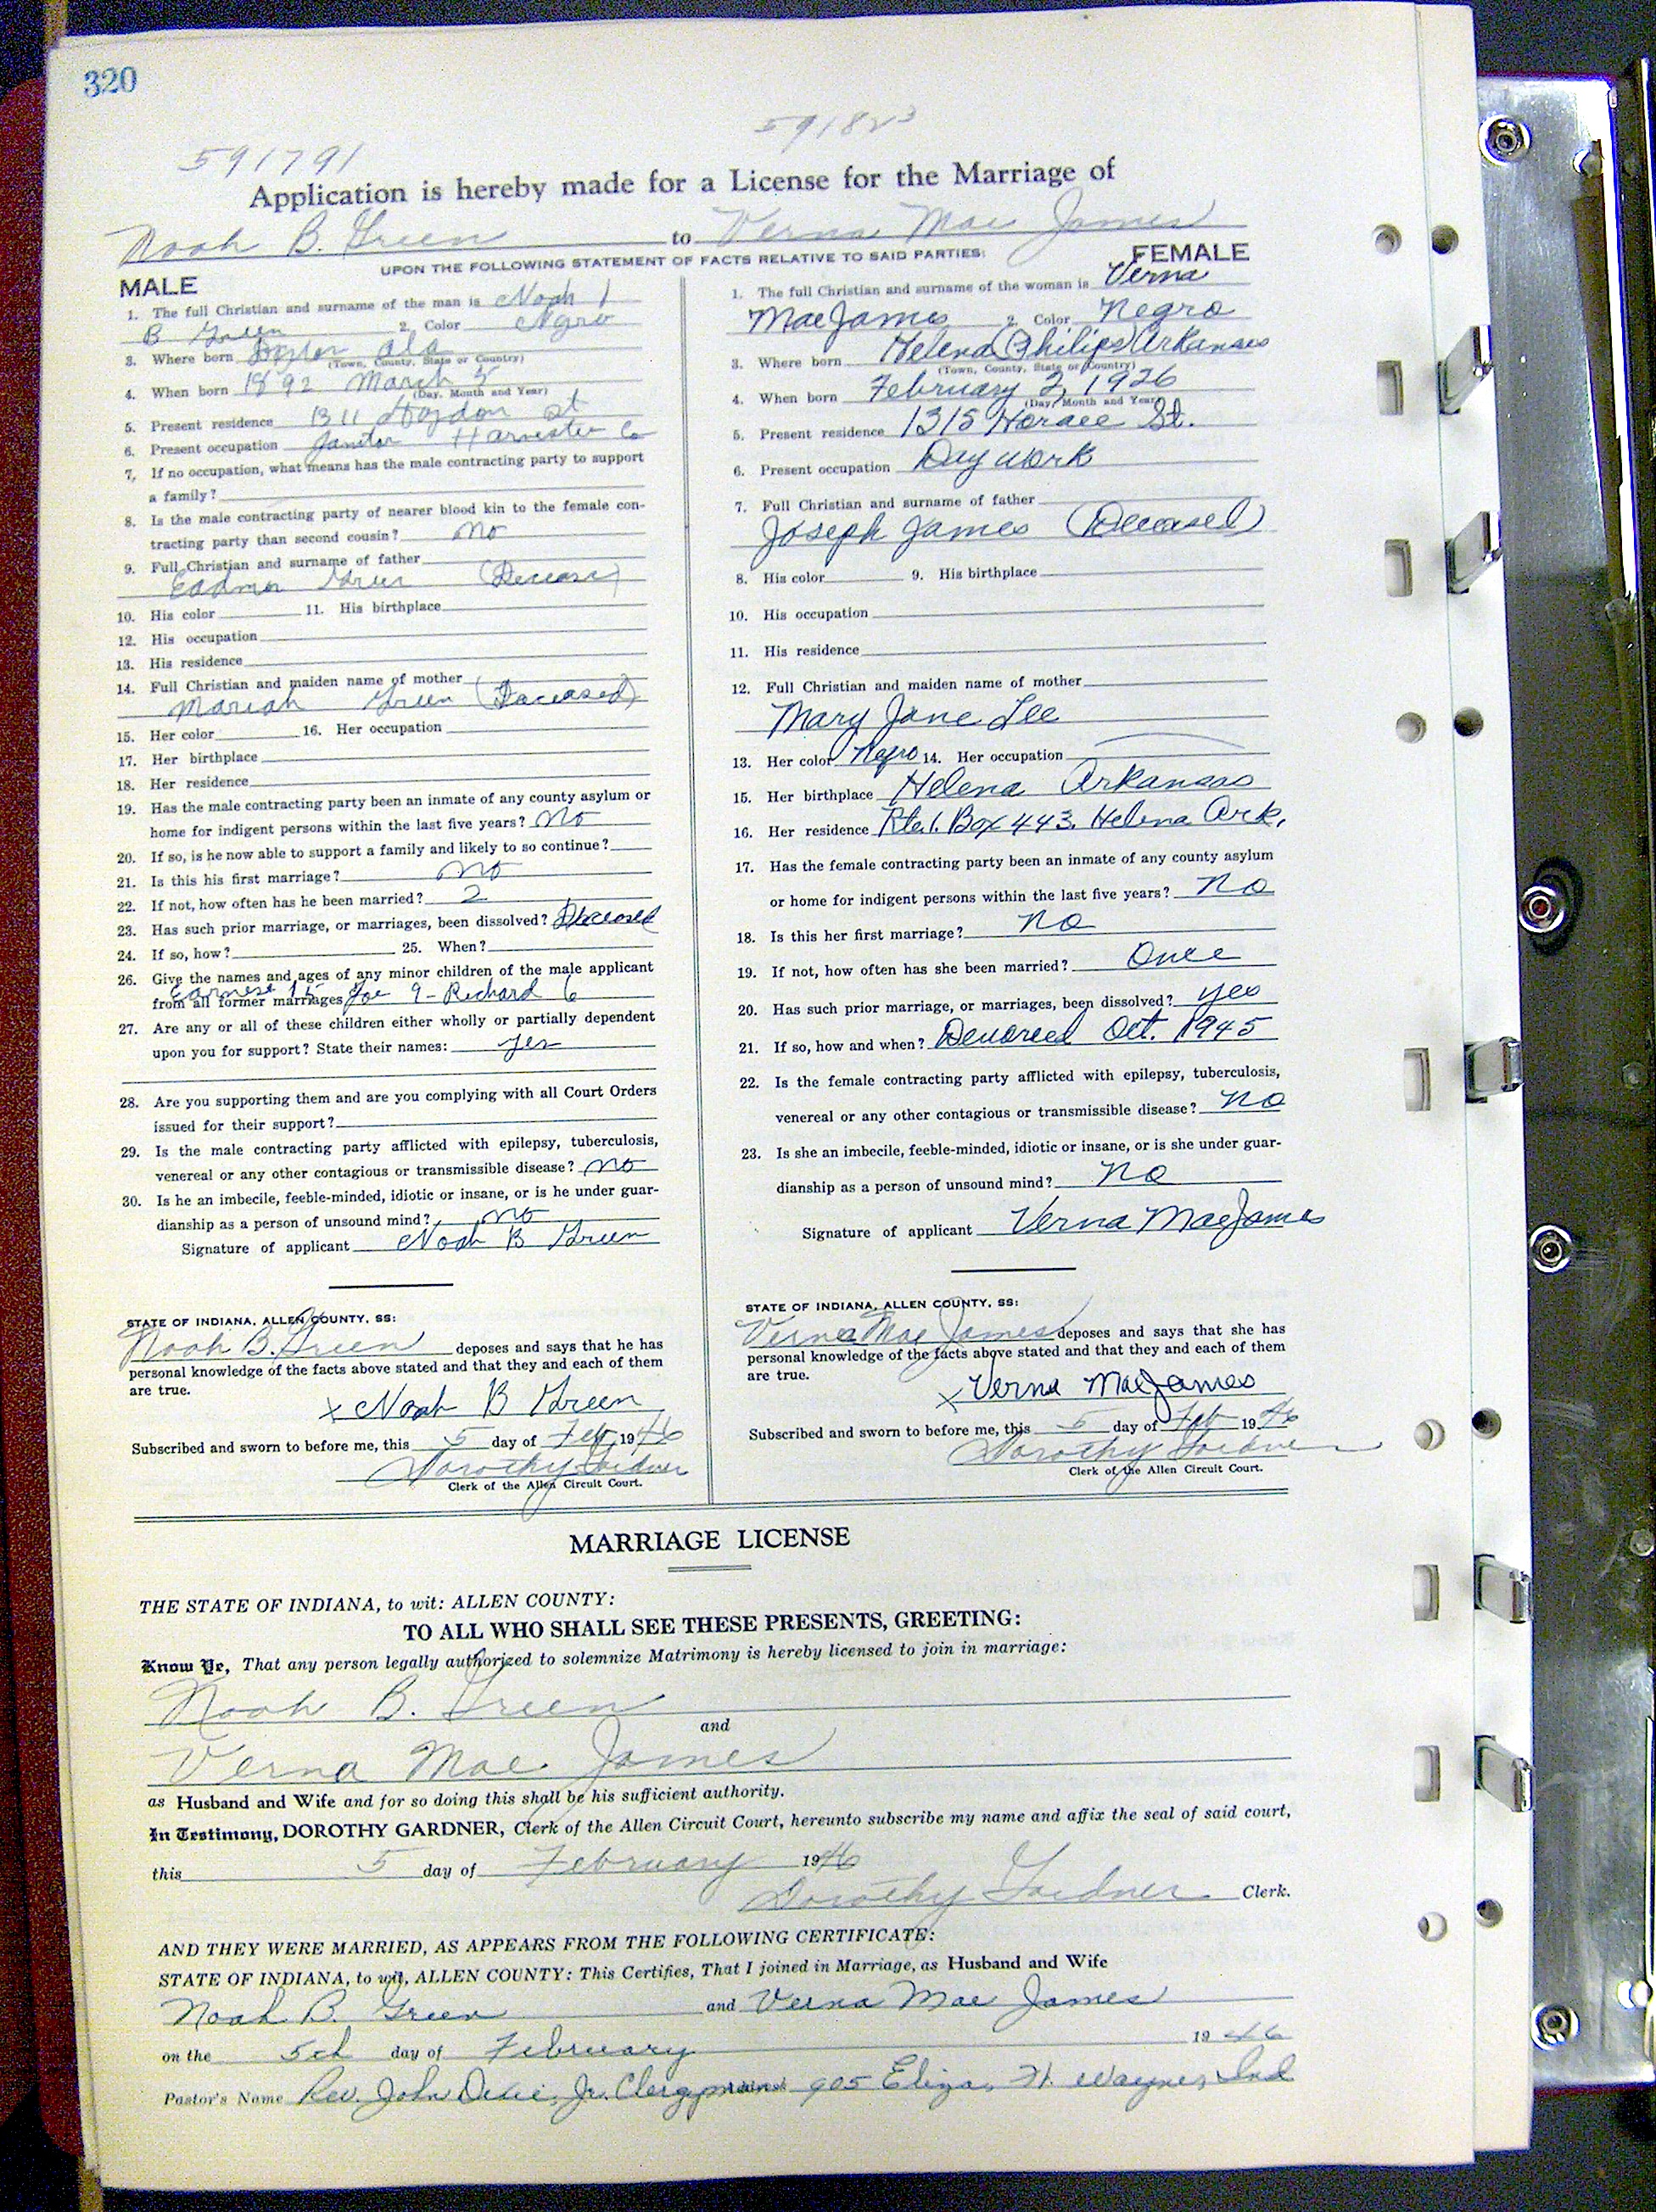 320
591791
Application is hereby made for a License for the Marriage of
Noah B. Green to Verna Mae James
UPON THE FOLLOWING STATEMENT OF FACTS RELATIVE TO SAID PARTIES:
MALE
1. The full Christian and surname of the man is Noah
B Green 2. Color Ngro
3. Where born Ala
(Town, County, State or Country)
4. When born 1892 March 5
(Day, Month and Year)
5. Present residence 1311 Hayden st
6. Present occupation Janitor Harvester Co
7. If no occupation, what means has the male contracting party to support
a family?
8. Is the male contracting party of nearer blood kin to the female con-
tracting party than second cousin? no
9. Full Christian and surname of father
Green
10. His color 11. His birthplace
12. His occupation
13. His residence
14. Full Christian and maiden name of mother
Mariah Green (Deceased)
15. Her color 16. Her occupation
17. Her birthplace
18. Her residence
19. Has the male contracting party been an inmate of any county asylum or
home for indigent persons within the last five years? no
20. If so, is he now able to support a family and likely to so continue?
21. Is this his first marriage? no
22. If not, how often has he been married? 2
23. Has such prior marriage, or marriages, been dissolved? Deceased
24. If so, how? 25. When?
26. Give the names and ages of any minor children of the male applicant
Earnest 15
from all former marriages Joe 9 - Richard 6
27. Are any or all of these children either wholly or partially dependent
upon you for support? State their names: yes
28. Are you supporting them and are you complying with all Court Orders
issued for their support?
29. Is the male contracting party afflicted with epilepsy, tuberculosis,
venereal or any other contagious or transmissible disease? no
30. Is he an imbecile, feeble-minded, idiotic or insane, or is he under guar-
dianship as a person of unsound mind? no
Signature of applicant Noah B Green
STATE OF INDIANA, ALLEN COUNTY, SS:
Noah B. Green deposes and says that he has
personal knowledge of the facts above stated and that they and each of them
are true.
x Noah B Green
Subscribed and sworn to before me, this 5 day of Feb 1946
Dorothy Gardner
Clerk of the Allen Circuit Court.
FEMALE
1. The full Christian and surname of the woman is Verna
Mae James 2. Color Negro
3. Where born Helena (Philips) Arkansas
(Town, County, State or Country)
4. When born February 2, 1926
(Day, Month and Year)
5. Present residence 1315 Horace St.
6. Present occupation Day work
7. Full Christian and surname of father
Joseph James (Deceased)
8. His color 9. His birthplace
10. His occupation
11. His residence
12. Full Christian and maiden name of mother
Mary Jane Lee
13. Her color Negro 14. Her occupation
15. Her birthplace Helena Arkansas
16. Her residence Rte. 1. Box 443. Helena Ark.
17. Has the female contracting party been an inmate of any county asylum
or home for indigent persons within the last five years? no
18. Is this her first marriage? no
19. If not, how often has she been married? Once
20. Has such prior marriage, or marriages, been dissolved? yes
21. If so, how and when? Devorced Oct. 1945
22. Is the female contracting party afflicted with epilepsy, tuberculosis,
venereal or any other contagious or transmissible disease? no
23. Is she an imbecile, feeble-minded, idiotic or insane, or is she under guar-
dianship as a person of unsound mind? no
Signature of applicant Verna Mae James
STATE OF INDIANA, ALLEN COUNTY, SS:
Verna Mae James deposes and says that she has
personal knowledge of the facts above stated and that they and each of them
are true.
x Verna Mae James
Subscribed and sworn to before me, this 5 day of Feb 1946
Dorothy Gardner
Clerk of the Allen Circuit Court.
MARRIAGE LICENSE
THE STATE OF INDIANA, to wit: ALLEN COUNTY:
TO ALL WHO SHALL SEE THESE PRESENTS, GREETING:
Know Ye, That any person legally authorized to solemnize Matrimony is hereby licensed to join in marriage:
Noah B. Green
and
Verna Mae James
as Husband and Wife and for so doing this shall be his sufficient authority.
In Testimony, DOROTHY GARDNER, Clerk of the Allen Circuit Court, hereunto subscribe my name and affix the seal of said court,
this 5 day of February 1946
Dorothy Gardner Clerk.
AND THEY WERE MARRIED, AS APPEARS FROM THE FOLLOWING CERTIFICATE:
STATE OF INDIANA, to wit, ALLEN COUNTY: This Certifies, That I joined in Marriage, as Husband and Wife
Noah B. Green and Verna Mae James
on the 5th day of February 1946
Pastor's Name Rev. John Dixie, Jr. Clergyman 905 Eliza, Ft. Wayne, Ind